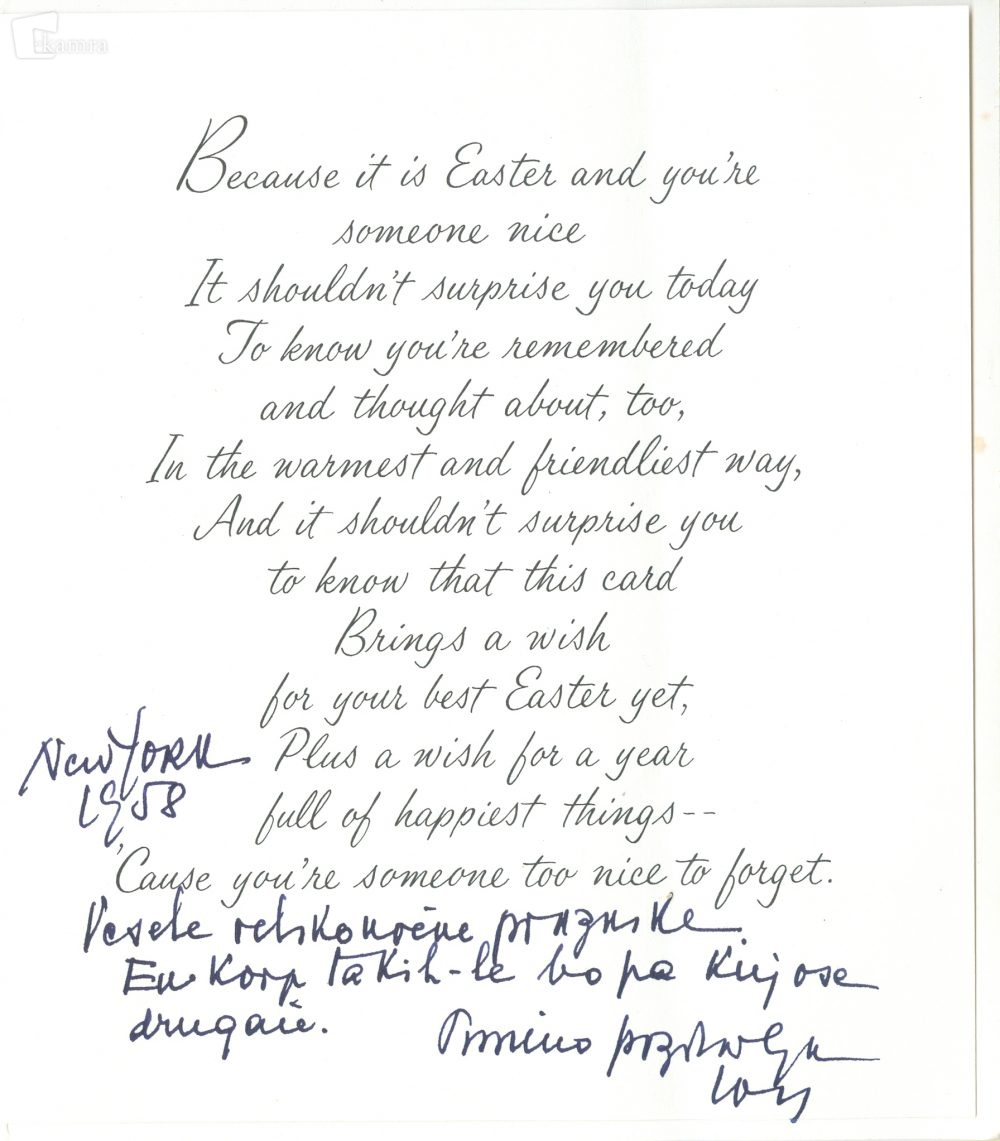 kamra
Because it is Easter and you're
someone nice
It shouldn't surprise you today
To know you're remembered
and thought about, too,
In the warmest and friendliest way,
And it shouldn't surprise you
to know that this card
Brings a wish
for your best Easter yet,
Plus a wish for a year
full of happiest things--
'Cause you're someone too nice to forget.
New York
1958
Vesele velikonočne praznike
En takih-le bo pa
drugače.